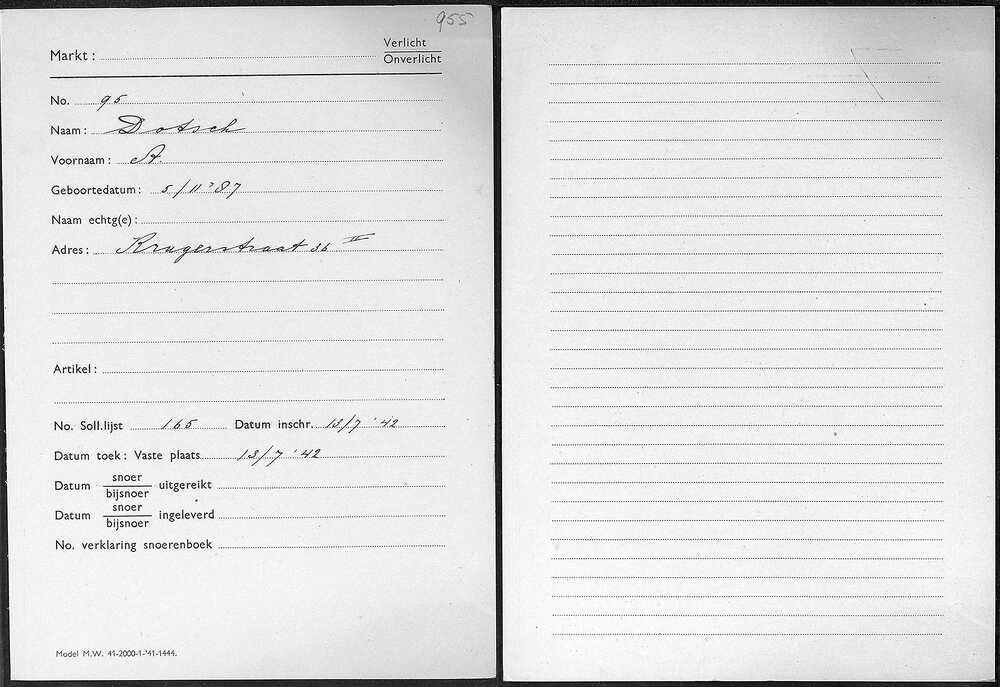 955
Markt :
Verlicht
Onverlicht
No. 95
Naam : Dotsch
Voornaam : A.
Geboortedatum : 5/11 '87
Naam echtg(e) :
Adres : Krugerstraat 36 II
Artikel :
No. Soll.lijst 165 Datum inschr. 13/7 '42
Datum toek : Vaste plaats 13/7 '42
Datum snoer/bijsnoer uitgereikt
Datum snoer/bijsnoer ingeleverd
No. verklaring snoerenboek
Model M.W. 41-2000-1-'41-1444.